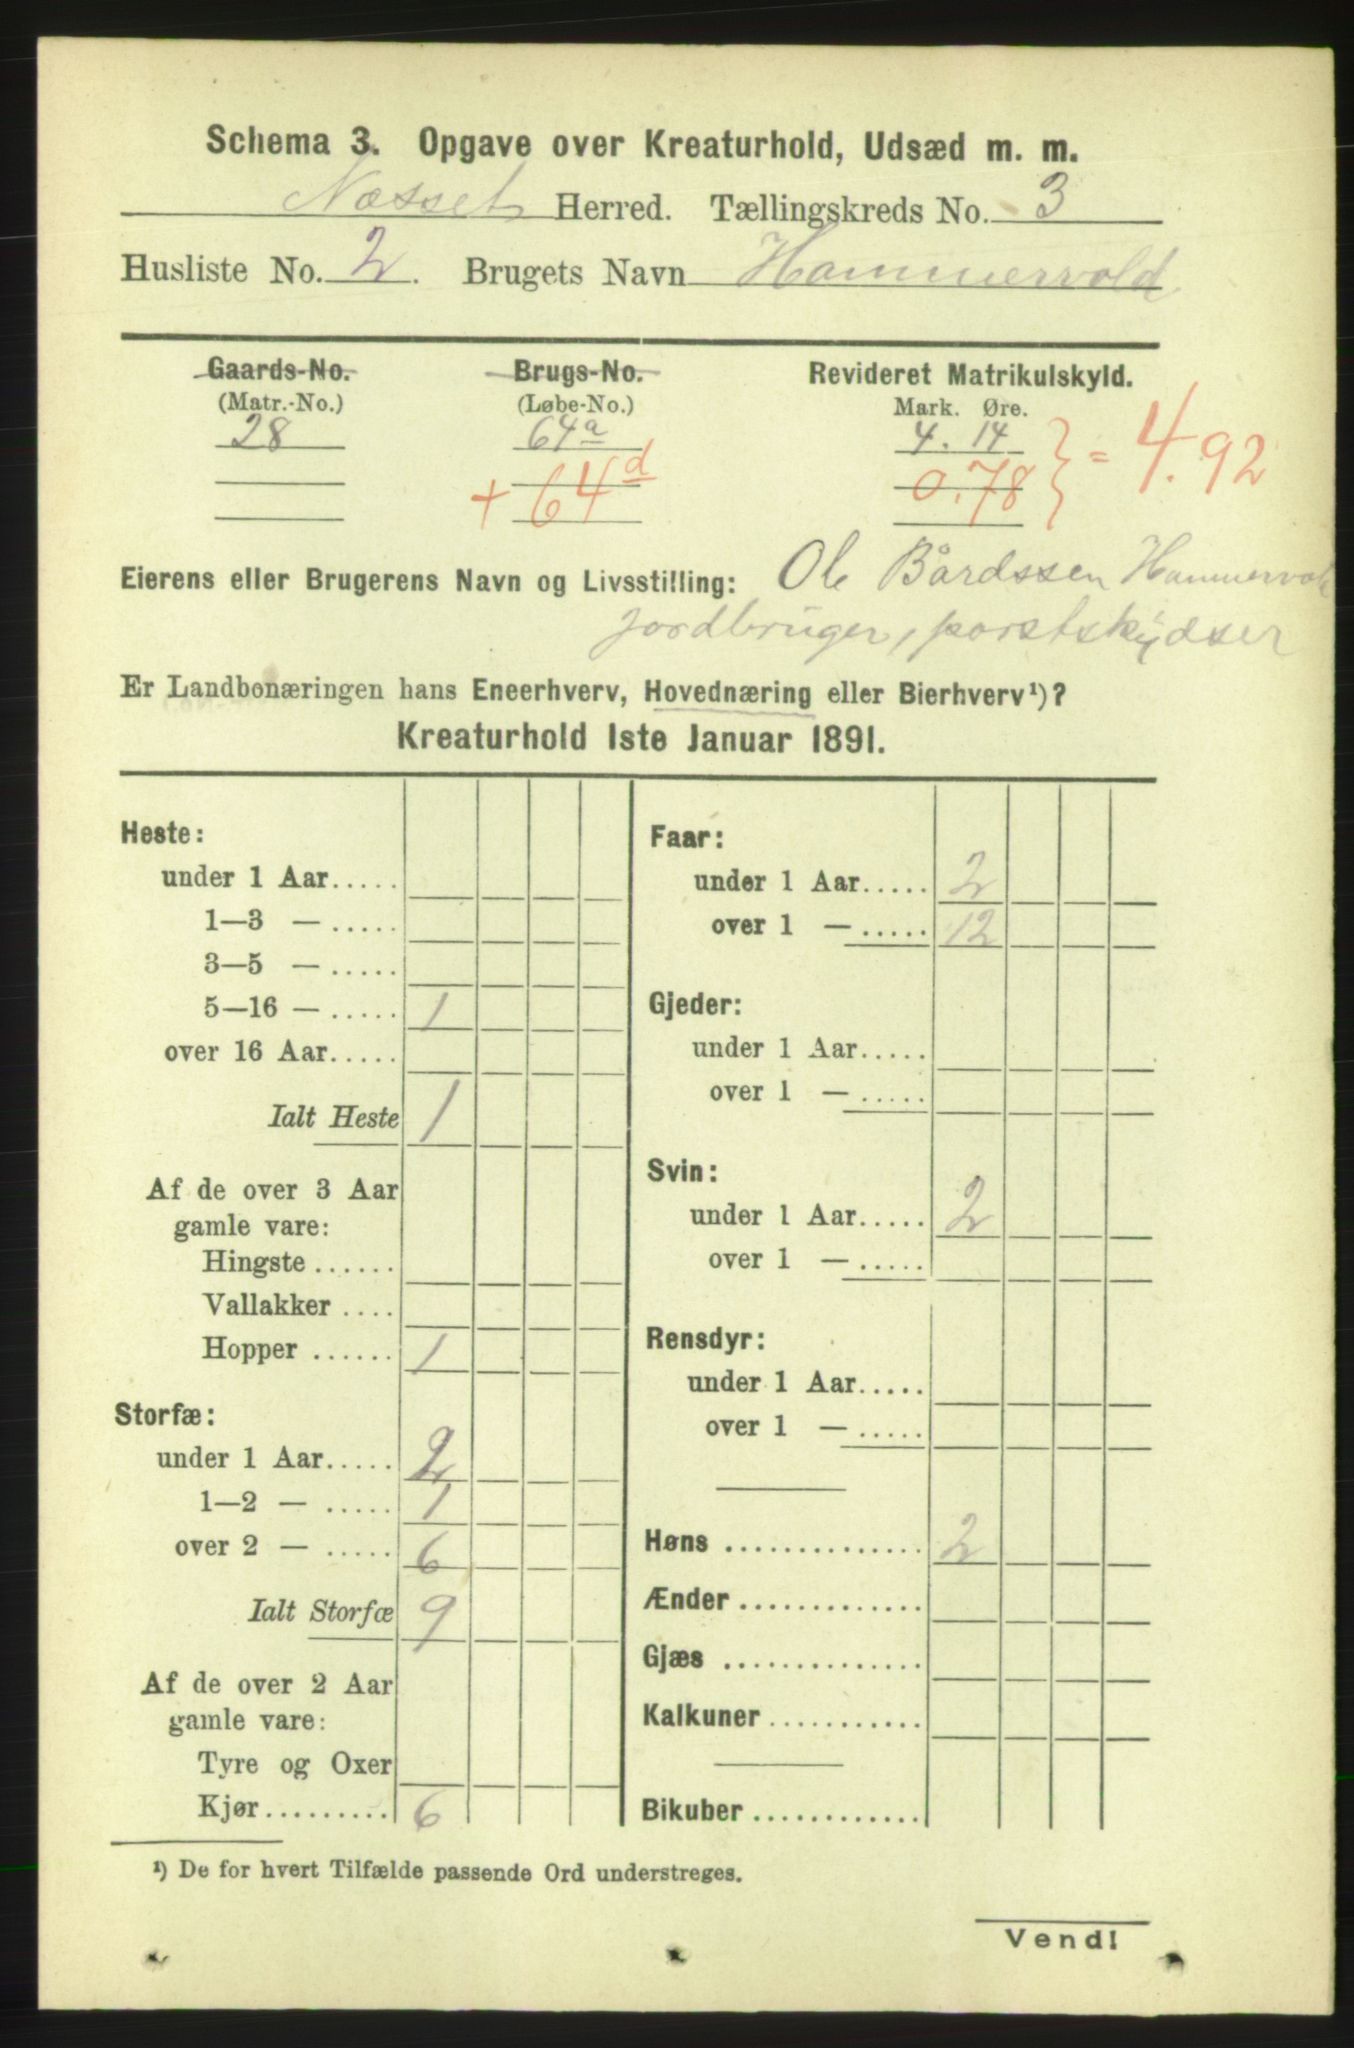 Schema 3. Opgave over Kreaturhold, Udsæd m. m.
Næsset Herred. Tællingskreds No. 3
Husliste No. 2. Brugets Navn Hammervold
Gaards-No. Brugs-No. Revideret Matrikulskyld.
(Matr.-No.) (Løbe-No.) Mark. Øre.
28 64a 4. 14
+ 64d 0.78 } = 4.92
Eierens eller Brugerens Navn og Livsstilling: Ole Bårdssen Hammervold
jordbruger,
Er Landbonæringen hans Eneerhverv, Hovednæring eller Bierhverv¹)?
Kreaturhold 1ste Januar 1891.
Heste:
under 1 Aar.....
1—3 — .....
3—5 — .....
5—16 — ..... 1
over 16 Aar.....
Ialt Heste 1
Af de over 3 Aar
gamle vare:
Hingste ......
Vallakker ....
Hopper ...... 1
Storfæ:
under 1 Aar..... 2
1—2 — ..... 1
over 2 — ..... 6
Ialt Storfæ 9
Af de over 2 Aar
gamle vare:
Tyre og Oxer
Kjør......... 6
Faar:
under 1 Aar..... 2
over 1 — ..... 12
Gjeder:
under 1 Aar.....
over 1 — .....
Svin:
under 1 Aar..... 2
over 1 — .....
Rensdyr:
under 1 Aar.....
over 1 — .....
Høns .............. 2
Ænder .............
Gjæs ..............
Kalkuner...........
Bikuber ............
¹) De for hvert Tilfælde passende Ord understreges.
Vend!